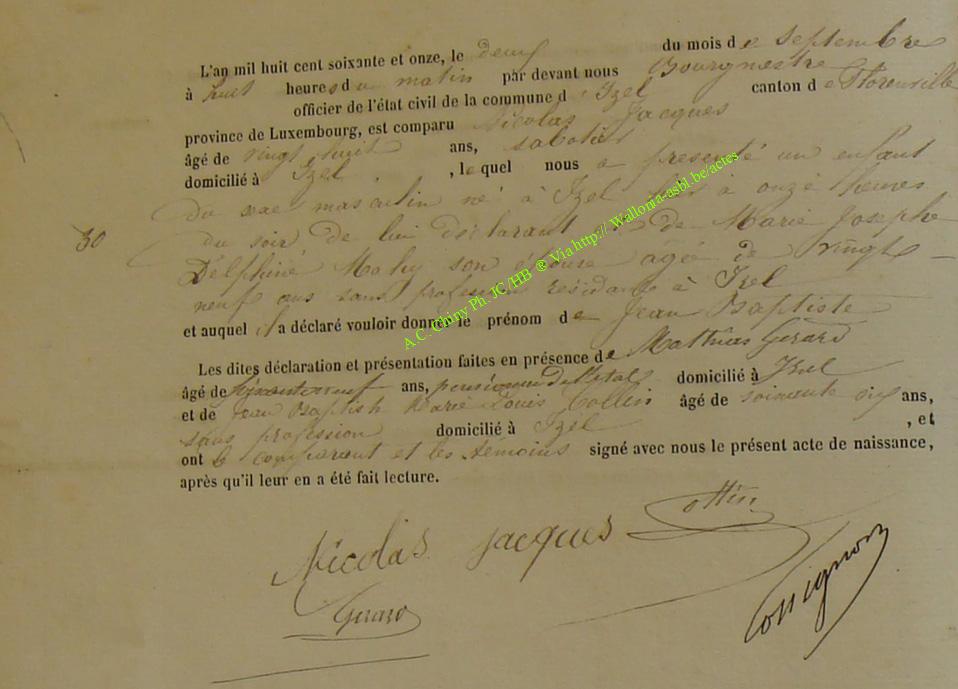 L'an mil huit cent soixante et onze, le deux du mois de Septembre
à huit heures du matin par devant nous Bourgmestre
officier de l'état civil de la commune d'Izel canton de Florenville
province de Luxembourg, est comparu Nicolas Jacques
âgé de vingt huit ans, sabotier
domicilié à Izel , lequel nous a presenté un enfant
du sexe masculin né à Izel à onze heures
30
du soir de lui déclarant de Marie Josephe
Delphine Mahy son épouse âgé de vingt
neuf ans sans profession résidante à Izel
et auquel il a déclaré vouloir donner le prénom de Jean Baptiste
Les dites déclaration et présentation faites en présence de Mathias Gerard
âgé de ans, pensionné de l'état domicilié à Izel
et de Jean Baptiste Marie Louis Collin âgé de soixante six ans,
sans profession domicilié à Izel , et
ont le comparant et les témoins signé avec nous le présent acte de naissance,
après qu'il leur en a été fait lecture.
Collin
Nicolas Jacques
Gerard
A.C. Chiny Ph. JC/HB ® Via http://Wallonia-asbl.be/actes